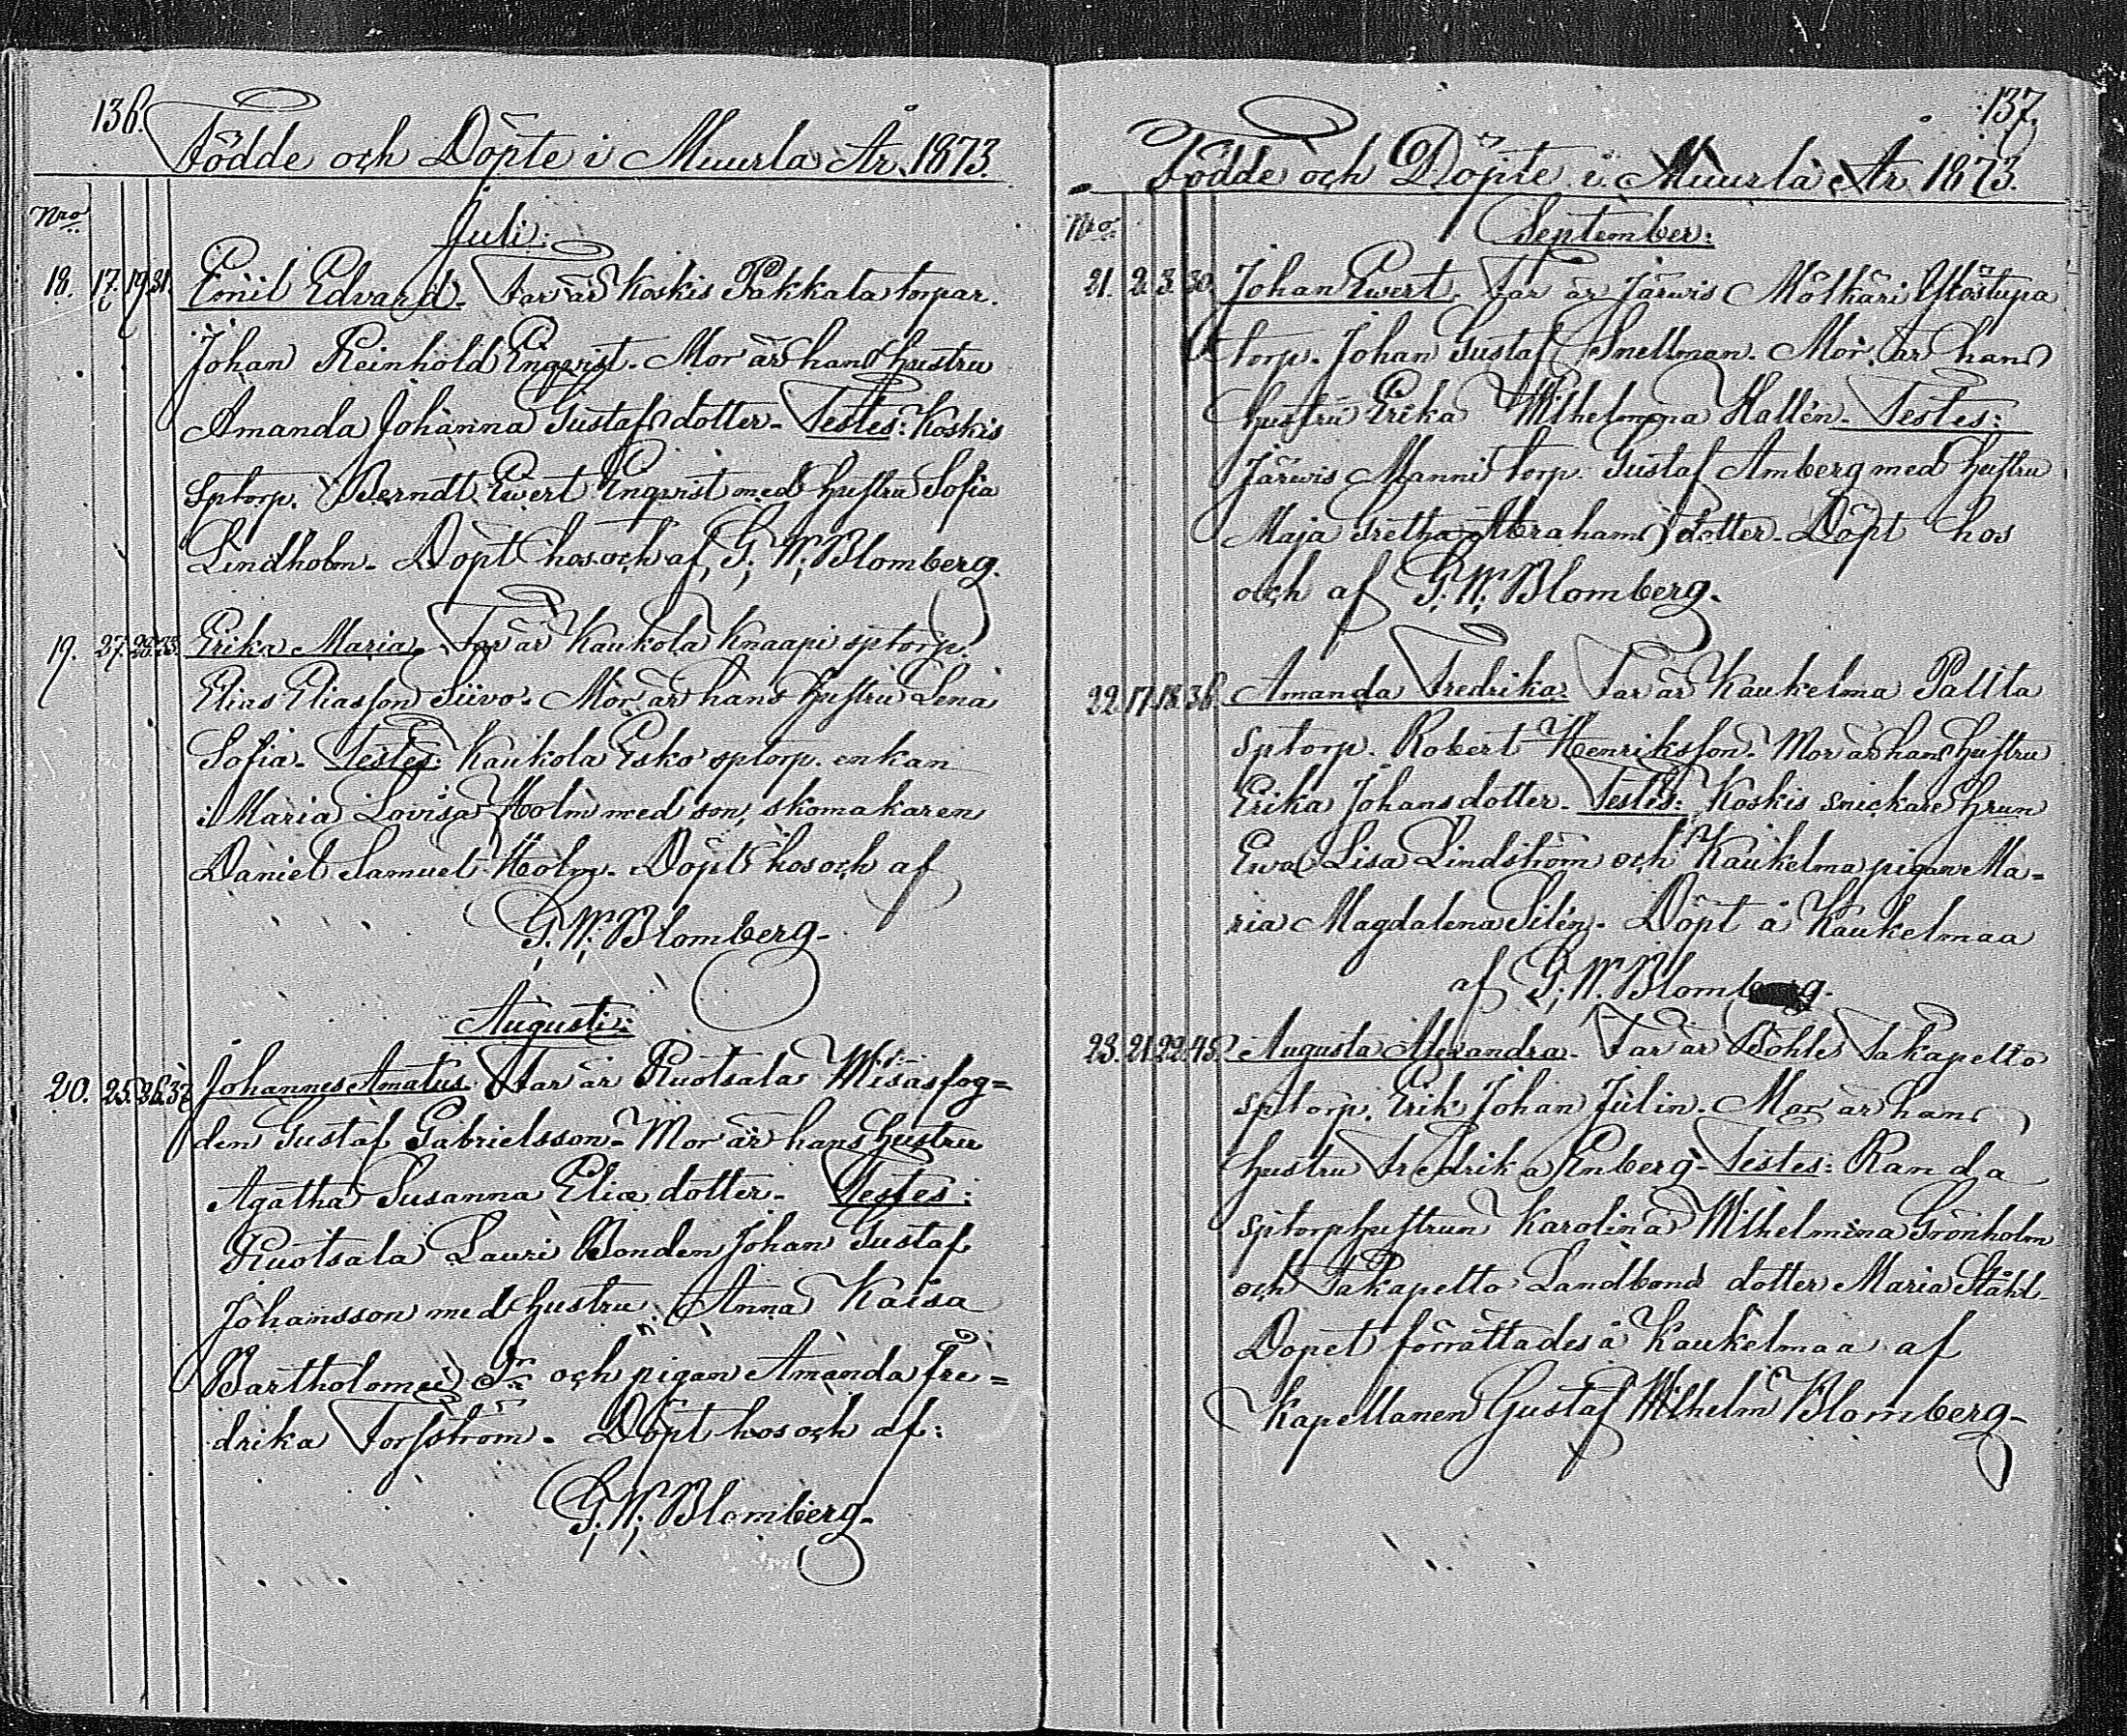 136.
Födde och Döpte i Muurla År 1873.
Nro
Juli:
18. 17. 19. 31. Emil Edvard. Far är Koskis Pakkala torpar.
Johan Reinhold Enqvist. Mor är hans hustru
Amanda Johanna Gustafsdotter. Testes: Koskis
sptorp. Berndt Evert Enqvist med hustru Sofia
Lindholm. Döpt hos och af G. W. Blomberg.
19. 27. 28. 23. Erika Maria. Far är Kaukola Knaapi sptorp.
Elias Eliasson Siivo. Mor är hans hustru Lena
Sofia. Testes: Kaukola Esko sptorp. enkan
Maria Lovisa Holm med son, skomakaren
Daniel Samuel Holm. Döpt hos och af
G. W. Blomberg.
Augusti:
20. 25. 26. 37. Johannes Amatus. Far är Ruotsala Wisasfog=
den Gustaf Gabrielsson. Mor är hans hustru
Agatha Susanna Eliæ dotter. Testes:
Ruotsala Lauri Bonden Johan Gustaf
Johansson med hustru Anna Kaisa
Bartholomei Dr och pigan Amanda Fre=
drika Forsström. Döpt hos och af:
G. W. Blomberg.
137.
Födde och Döpte i Muurla År 1873.
Nro
September:
21. 2. 3. 30. Johan Evert. Far är Järwis Mölkäri Ylöstupa
torp. Johan Gustaf Snellman. Mor är hans
hustru Erika Wilhelmina Hallén. Testes:
Järwis Manni torp. Gustaf Amberg med hustru
Maja Gretha Abrahamsdotter. Döpt hos
och af G. W. Blomberg.
22. 17. 18. 36. Amanda Fredrika. Far är Kaukelma Paltta
sptorp. Robert Henriksson. Mor är hans hustru
Erika Johansdotter. Testes: Koskis snickare hrun
Eva Lisa Lindström och Kaukelma pigan Ma=
ria Magdalena Silén. Döpt å Kaukelmaa
af G. W. Blomberg.
23. 21. 22. 43. Augusta Alexandra. Far är Böhle Takapelto
sptorp. Erik Johan Julin. Mor är hans
hustru Fredrika Enberg. Testes: Randa
sptorphustrun Karolina Wilhelmina Grönholm
och Takapelto Landbonds dotter Maria Ståhl.
Dopet förrättades å Kaukelmaa af
Kapellanen Gustaf Wilhelm Blomberg.